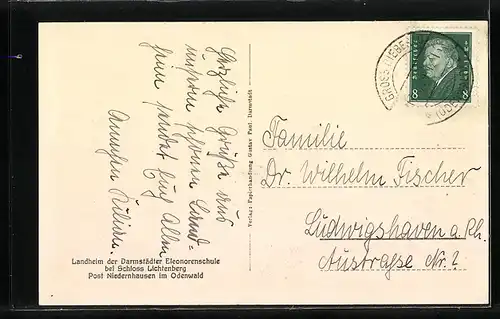 Herzliche Grüße aus
unserm schönen Land-
heim sendet Euch Allen
Annchen Kilian.
Landheim der Darmstädter Eleonorenschule
bei Schloss Lichtenberg
Post Niedernhausen im Odenwald
Verlag: Papierhandlung Gustav Paul, Darmstadt
GROSS BIEBE
(ODE
DEUTSCHES REICH
8 8
Familie
Dr. Wilhelm Fischer
Ludwigshaven a. Rh.
Austraße Nr. 2